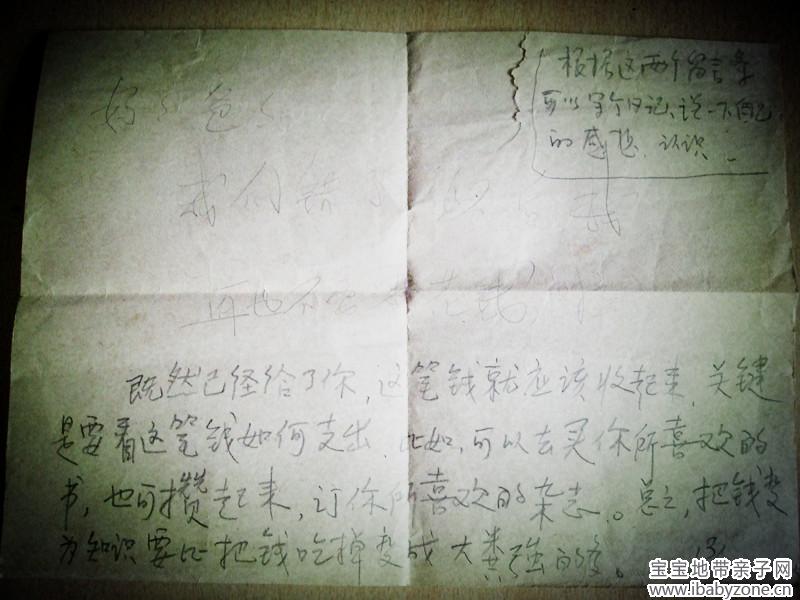 根据这两个留言条
可以写个日记、说一下自己
的感想、认识。
好爸爸
我们错了 我
再也不会 花钱
既然已经给了你,这笔钱就应该收起来,关键
是要看这笔钱如何支出,比如,可以去买你所喜欢的
书,也可攒起来,订你所喜欢的杂志。总之,把钱变
为知识要比把钱吃掉变成大粪强的多。
宝宝地带亲子网
www.ibabyzone.cn